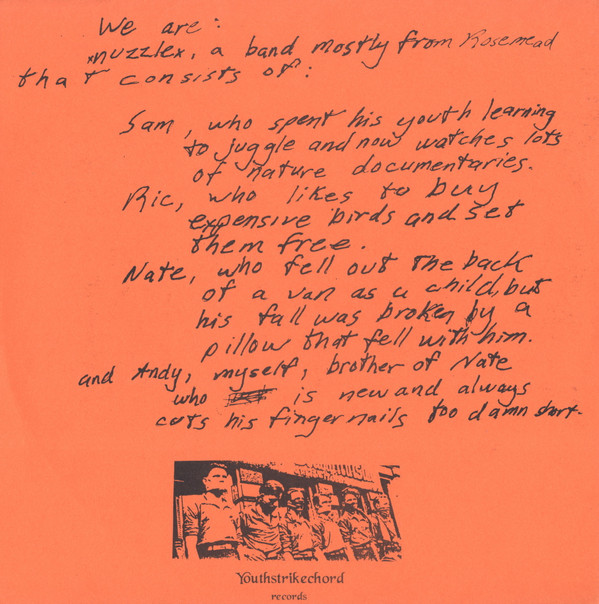 We are:
xnuzzlex, a band mostly from Rosemead
that consists of:
Sam, who spent his youth learning
to juggle and now watches lots
of nature documentaries.
Ric, who likes to buy
expensive birds and set
them free.
Nate, who fell out the back
of a van as a child, but
his fall was broken by a
pillow that fell with him.
and Andy, myself, brother of Nate
who is new and always
cuts his fingernails too damn short.
Youthstrikechord
records